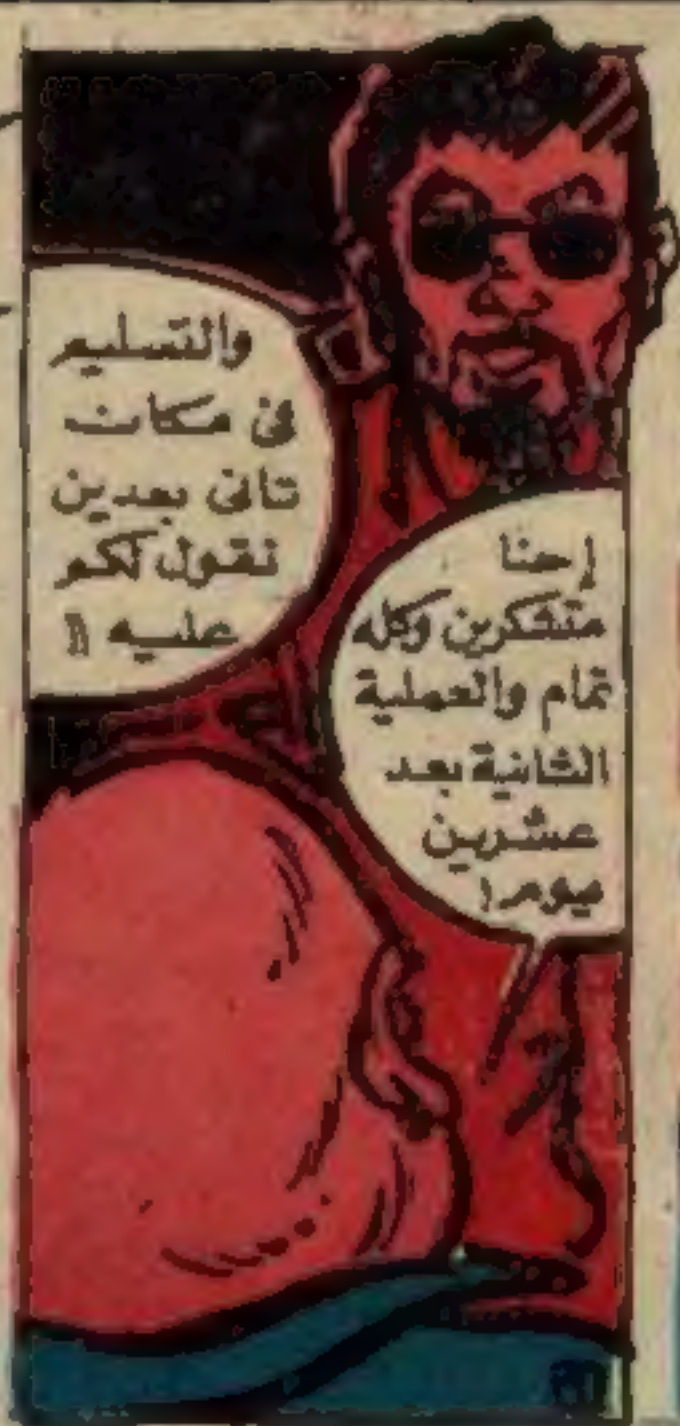 إحنا
متشكرين وكله
تمام والعملية
الثانية بعد
عشرين
يوم!
والتسليم
فى مكان
تانى بعدين
نقول لكم
عليه !!